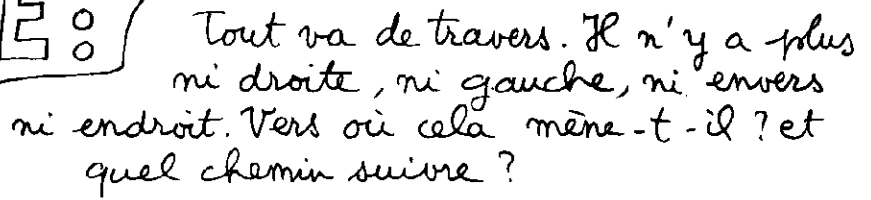 E : Tout va de travers. Il n'y a plus
ni droite, ni gauche, ni envers
ni endroit. Vers où cela mène-t-il ? et
quel chemin suivre ?